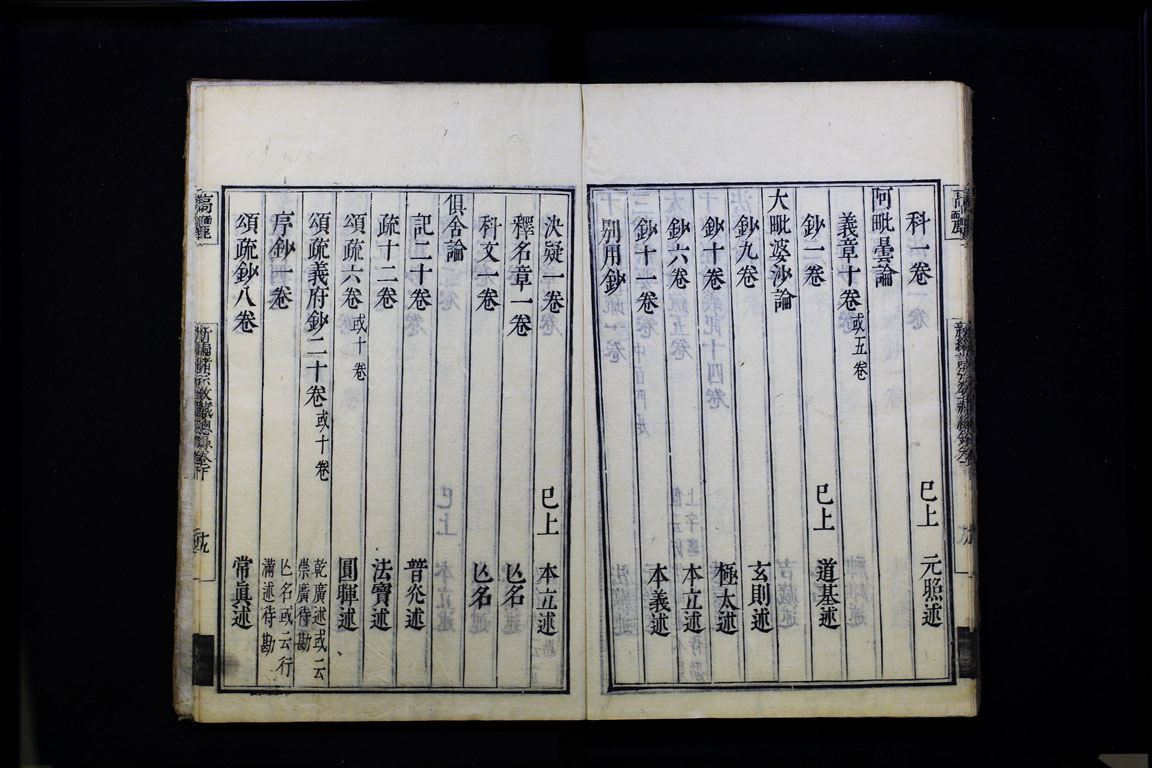 科一卷 巳上 元照述
阿毗曇論
義章十卷 或五卷
鈔二卷 巳上 道基述
大毗婆沙論
鈔九卷 玄則述
鈔十卷 極太述
鈔六卷 本立述
鈔十一卷 本義述
別用鈔
決疑一卷 巳上 本立述
釋名章一卷 亾名
科文一卷 亾名
俱舍論
記二十卷 普光述
疏十二卷 法寶述
頌疏六卷 或十卷 圓暉述
頌疏義府鈔二十卷 或十卷 乾廣述或云崇廣待勘
序鈔一卷 亾名或云行滿述待勘
頌疏鈔八卷 常眞述
高麗
新編諸宗教藏總錄卷
十九